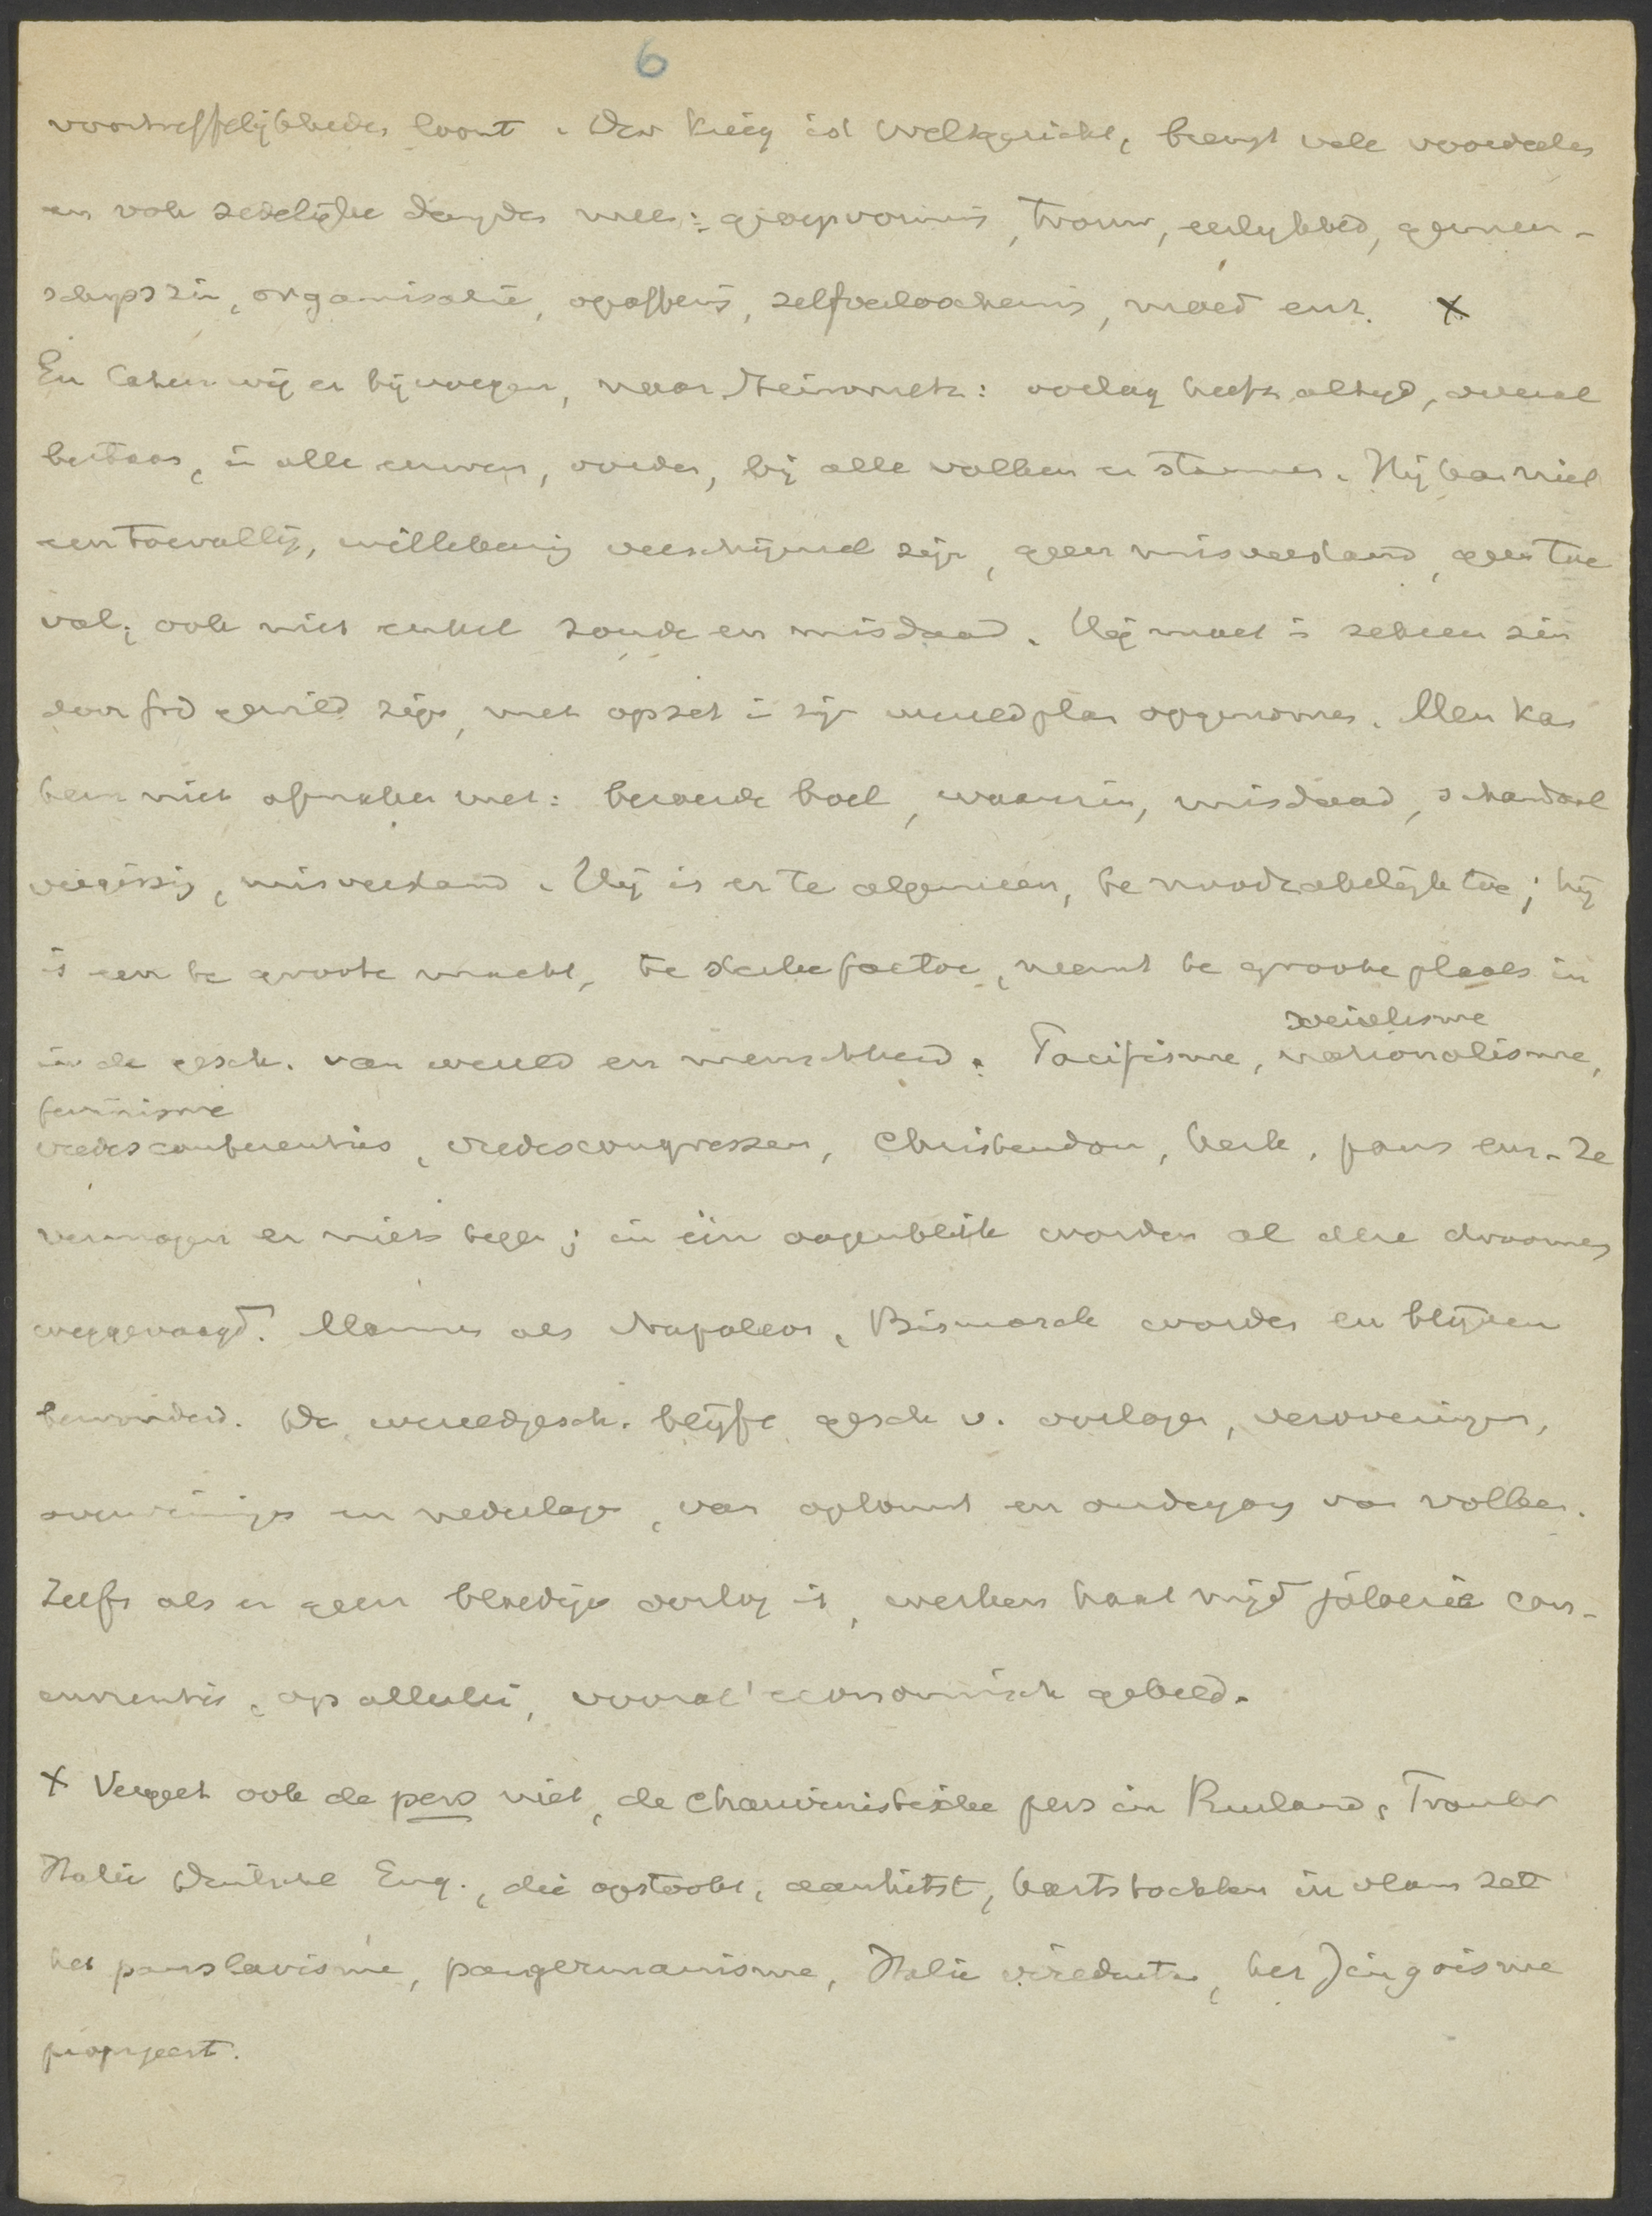 6
voortreffelijkheden loont. Der Krieg ist Weltgericht, brengt vele voordeelen
en vele zedelijke deugden mee: groepvorming, trouw, eerlijkheid, gemeen-
schapszin, organisatie, opoffering, zelfverloochening, moed enz. X
En laten wij er bijvoegen, naar Steinmetz: oorlog heeft altijd, overal
bestaan, in alle eeuwen, oorden, bij alle volken en stammen. Hij kan niet
een toevallig, willekeurig verschijnsel zijn, geen misverstand, geen toe
val; ook niet enkel zonde en misdaad. Hij moet in zekeren zin
door God gewild zijn, met opzet in zijn wereldplan opgenomen. Men kan
hem niet afmaken met: beroerde boel, waanzin, misdaad, schandaal
vergissing, misverstand. Hij is er te algemeen, te noodzakelijk toe; hij
is een te groote macht, te sterke factor, neemt te groote plaats in
in de gesch. van wereld en menschheid. Pacifisme, socialisme rationalisme,
feminisme
vredesconferenties, vredescongressen, Christendom, kerk, paus enz. Ze
vermogen er niets tegen; in één oogenblik worden al deze droomen
weggevaagd. Mannen als Napoleon, Bismarck worden en blijven
bewonderd. De wereldgesch. blijft gesch v. oorlogen, veroveringen,
overwinningen en nederlagen, van opkomst en ondergang van volken.
Zelfs als er geen bloedige oorlog is, werken haat nijd jaloezie con-
currentie, op allerlei, vooral economisch gebied.
X Vergeet ook de pers niet, de chauvinistische pers in Rusland, Frankr
Italië Duitschl Eng., die opstookt, aanhitst, hartstochten in vlam zet
het panslavisme, pangermanisme, Italia irredenta, het Jingoisme
propageert.